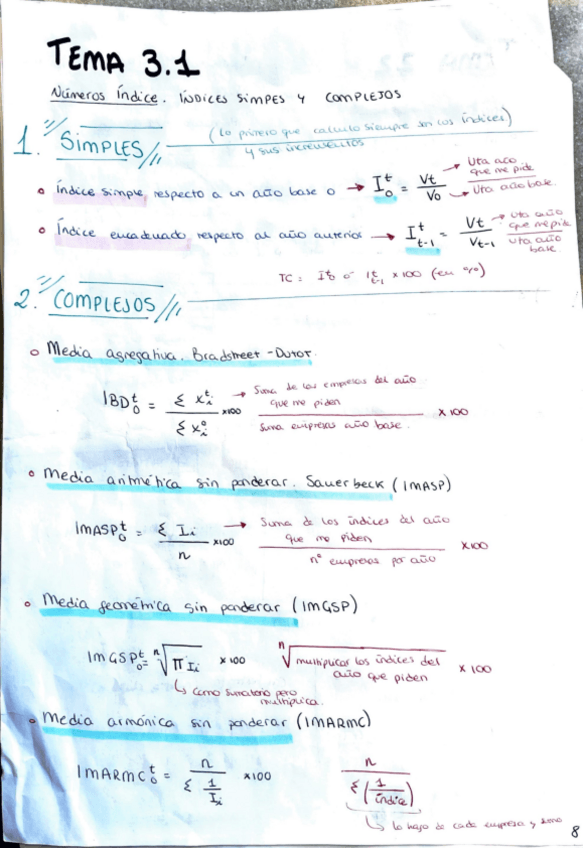 TEMA 3.1
Números Índice. ÍNDICES SIMPES Y COMPLEJOS
1. SIMPLES
(Lo primero que calculo siempre son los índices)
y sus incrementos
Índice simple, respecto a un año base 0 → I₀ᵗ = Vt / V₀
→ Uta año que me pide
→ Uta año base.
Índice encadenado, respecto al año anterior → Iᵗₜ₋₁ = Vt / Vt-1
→ Uta año que me pide
Uta año base.
TC = I₀ᵗ o Iᵗₜ₋₁ x 100 (en %)
2. COMPLEJOS
Media agregativa. Bradstreet-Dutot.
IBD₀ᵗ = Σ xᵢᵗ / Σ xᵢ⁰ x100
→ Suma de las empresas del año que me piden
Suma empresas año base.
x 100
Media aritmética sin ponderar. Sauerbeck (IMASP)
IMASP₀ᵗ = Σ Iᵢ / n x100
→ Suma de los índices del año que me piden
nº empresas por año
x100
Media geométrica sin ponderar (IMGSP)
IMGSP₀ᵗ = ⁿ√π Iᵢ x 100
ⁿ√multiplicar los índices del año que piden x 100
↳ como sumatorio pero multiplica.
Media armónica sin ponderar (IMARMC)
IMARMC₀ᵗ = n / Σ 1/Iᵢ x100
n / Σ (1/índice)
↳ lo hago de cada empresa y
8